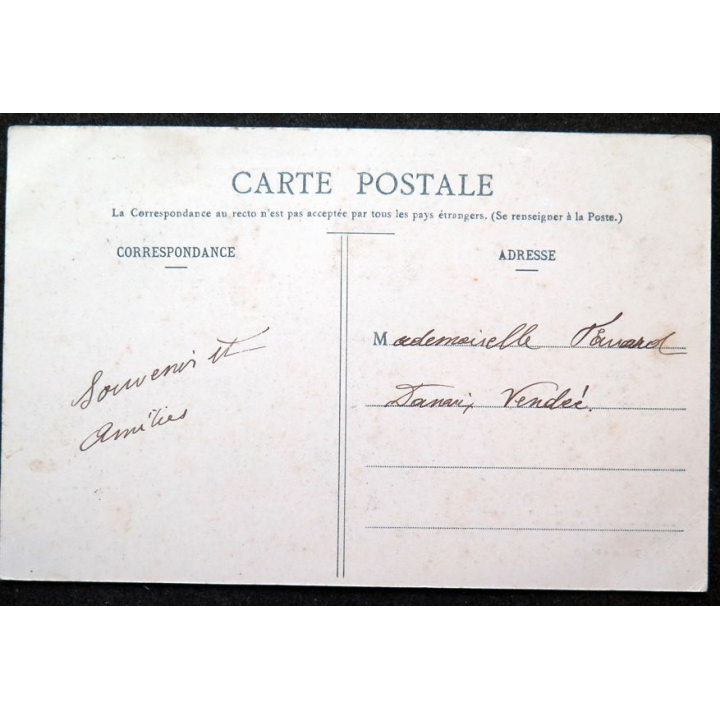 CARTE POSTALE
La Correspondance au recto n'est pas acceptée par tous les pays étrangers. (Se renseigner à la Poste.)
CORRESPONDANCE
Souvenir et
Amitiés
ADRESSE
Mademoiselle
Vendée.